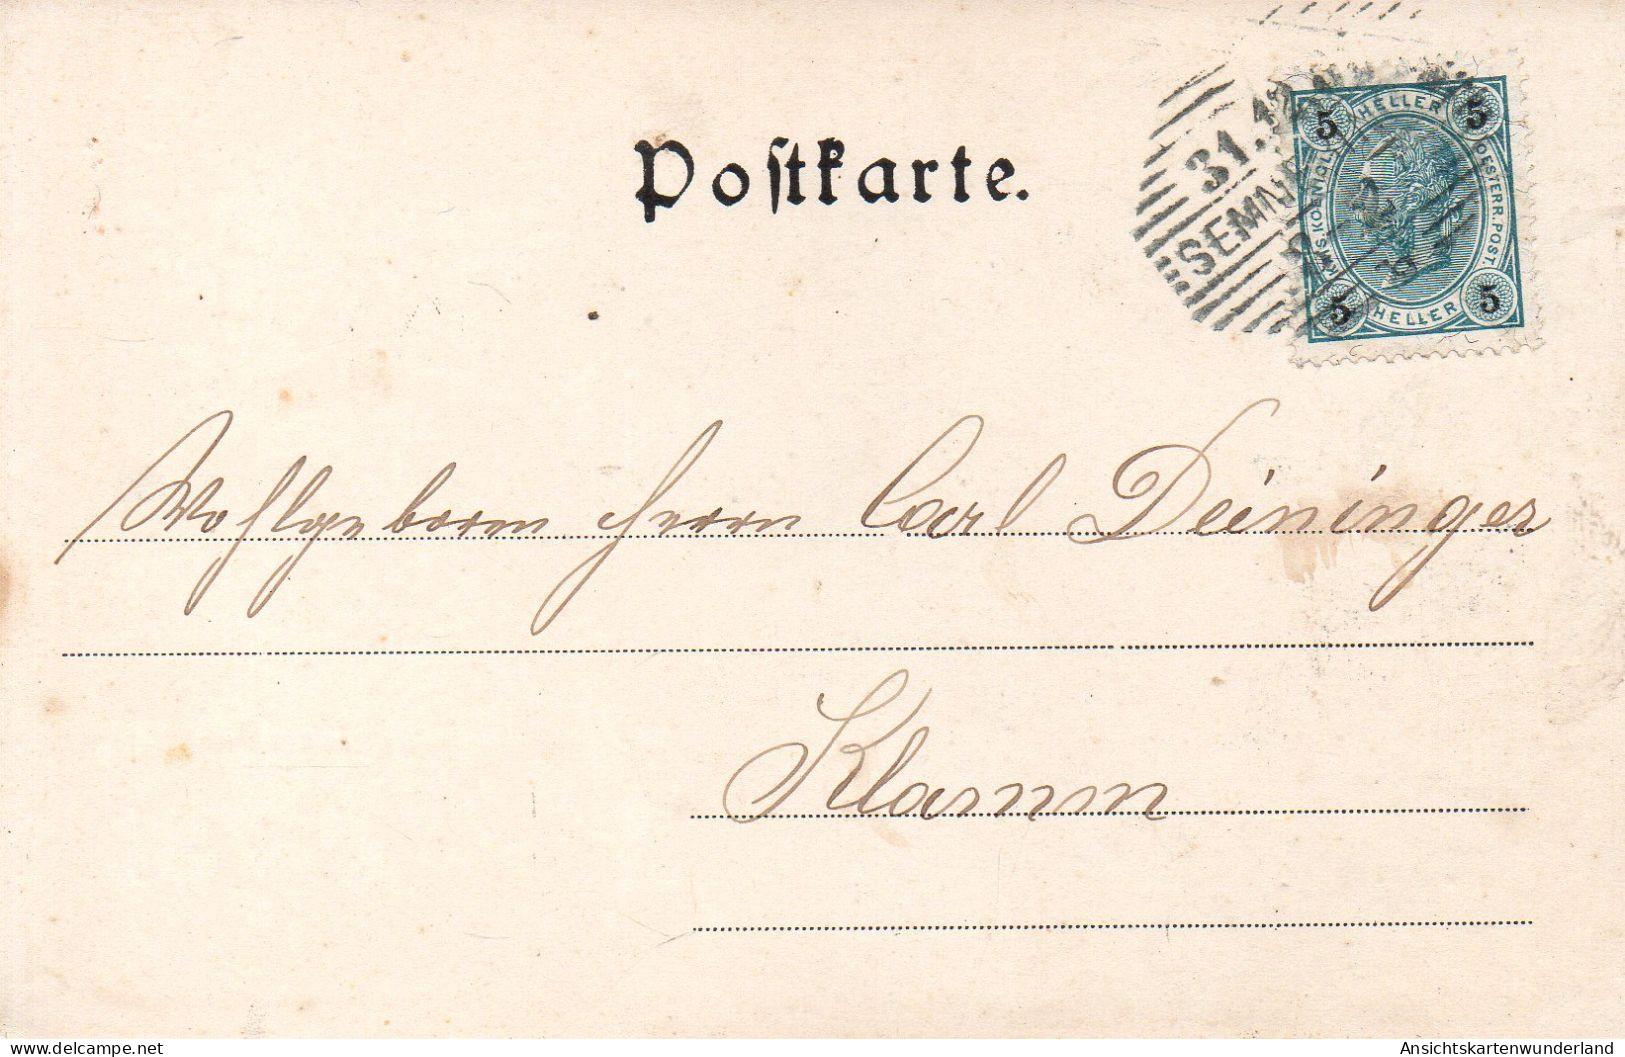 Postkarte.
31.12
SEMM
5 HELLER 5
KAIS.KOENIGL. OESTERR.POST.
5 HELLER 5
Wohlgeboren Herrn Carl Deininger
Klamm
delcampe.net
Ansichtskartenwunderland